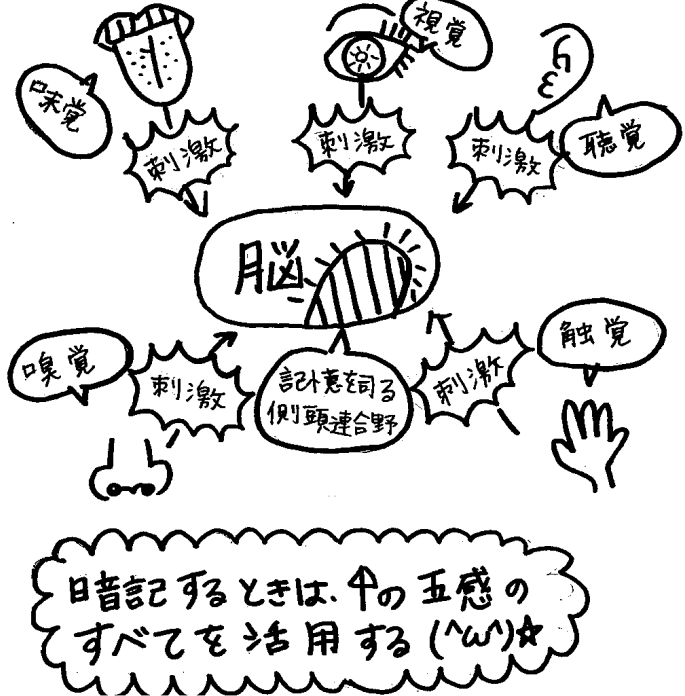 視覚
味覚
刺激
刺激
刺激
聴覚
脳
嗅覚
刺激
記憶を司る
側頭連合野
刺激
触覚
暗記するときは、↑の五感の
すべてを活用する(^ω^)☆